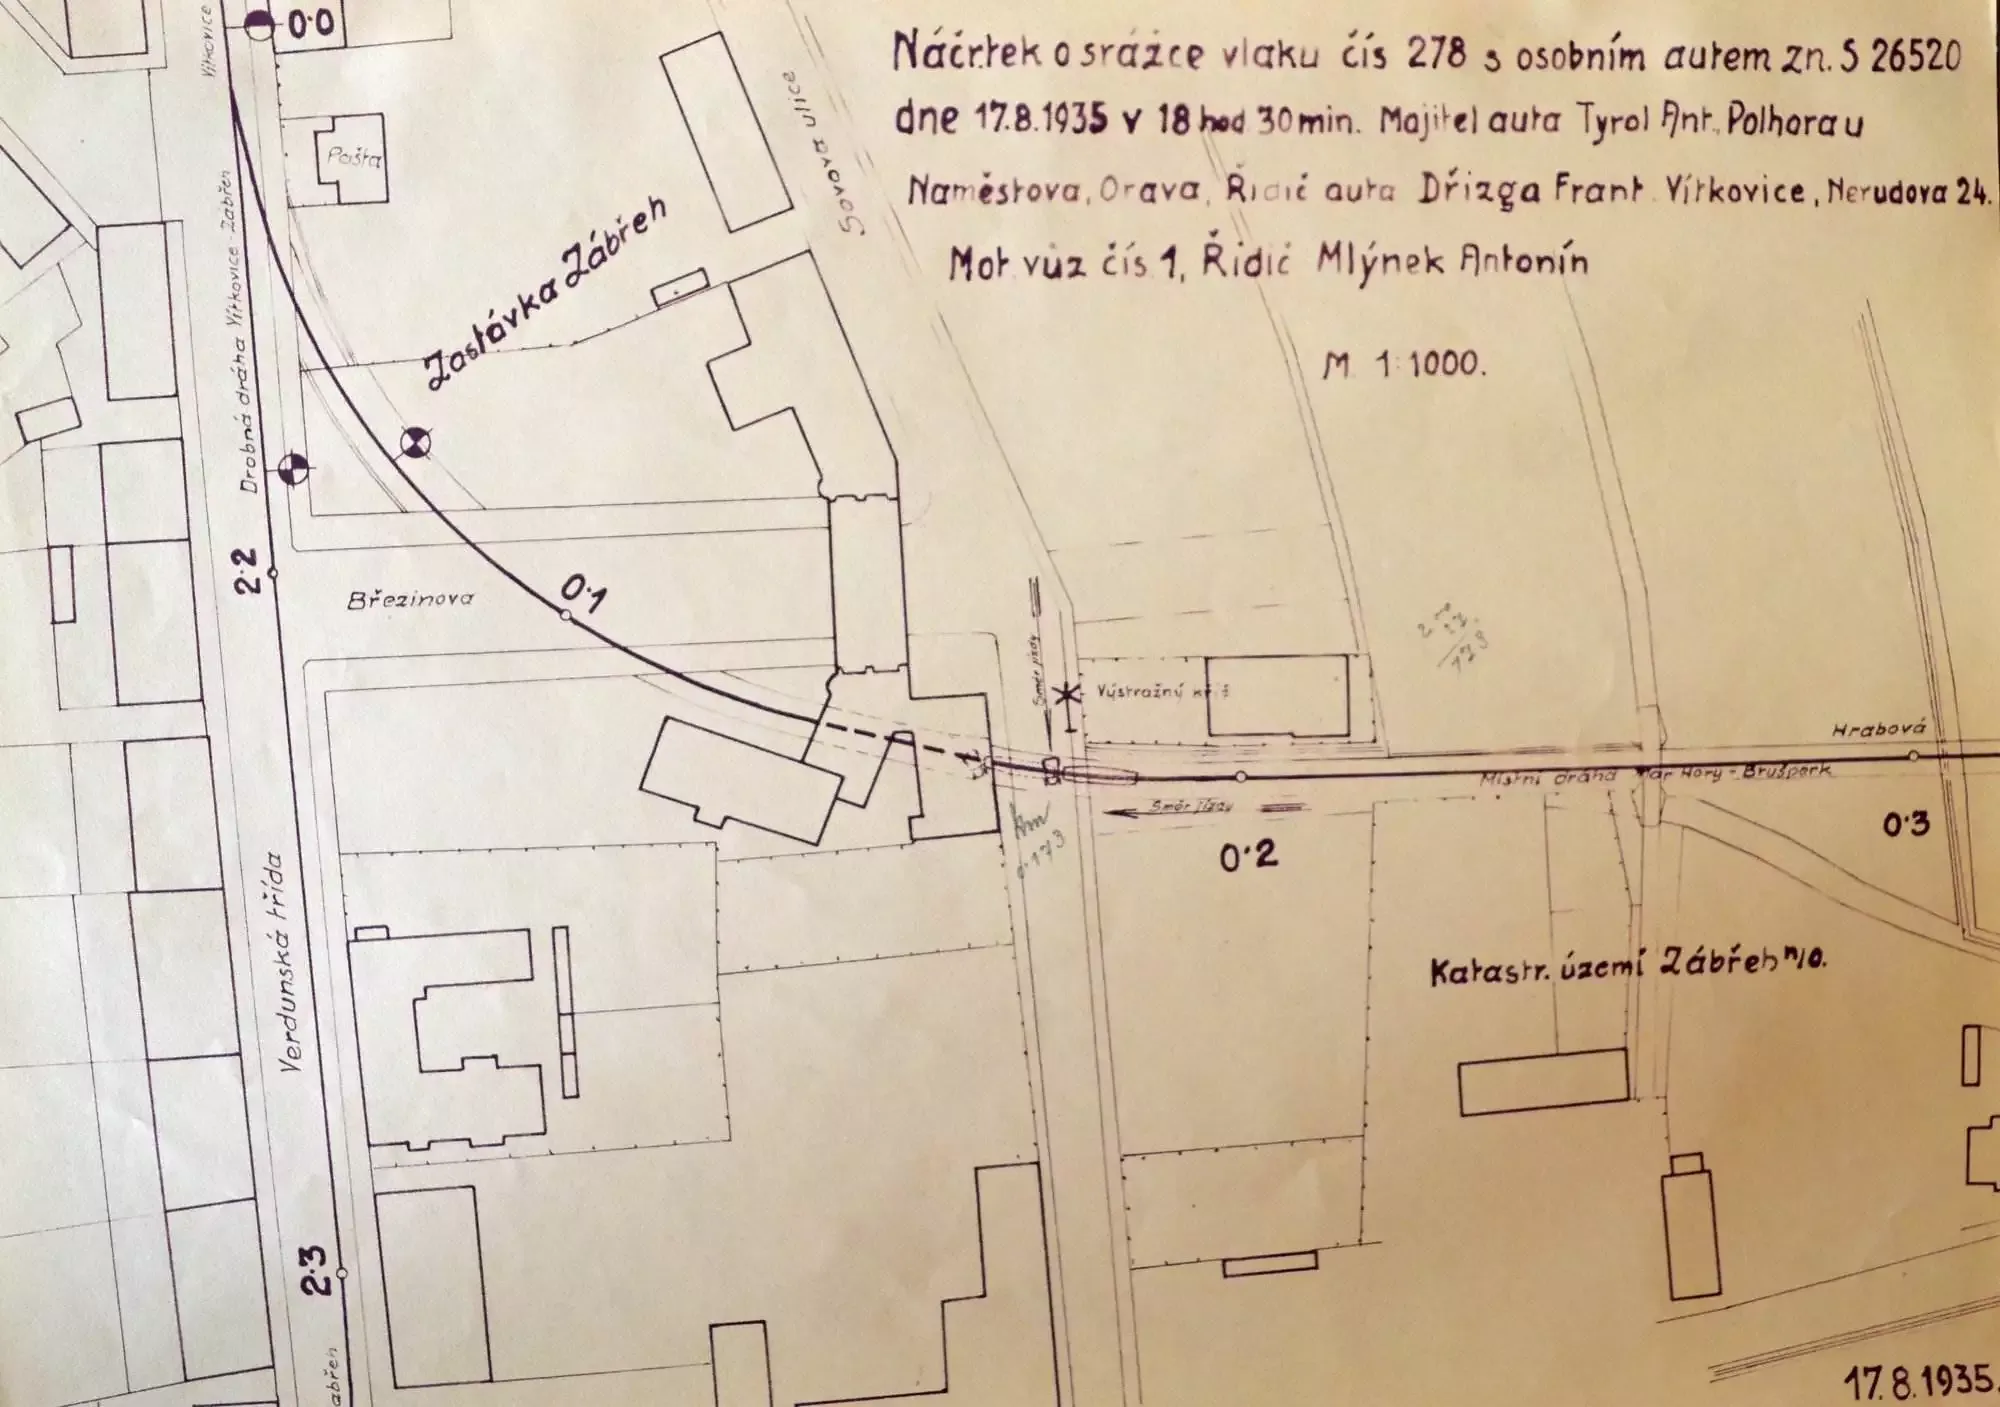 Náčrtek o srážce vlaku čís 278 s osobním autem zn. S 26520
dne 17.8.1935 v 18 hod 30 min. Majitel auta Tyrol Ant. Polhora u
Naměstova, Orava, Řidič auta Dřizga Frant Vítkovice, Nerudova 24.
Mot vůz čís 1, Řidič Mlýnek Antonín
M 1:1000.
Vítkovice
0·0
Pošta
Sovova ulice
Zastávka Zábřeh
Drobná dráha Vítkovice-Zábřeh
2·2
Březinova
0·1
Směr jízdy
Výstražný kříž
Hrabová
Místní dráha Mar Hory - Brušperk
Směr jízdy
km
0·173
0·2
0·3
Verdunská třída
Katastr. území Zábřeh n/O.
2·3
ábřeh
17.8.1935.